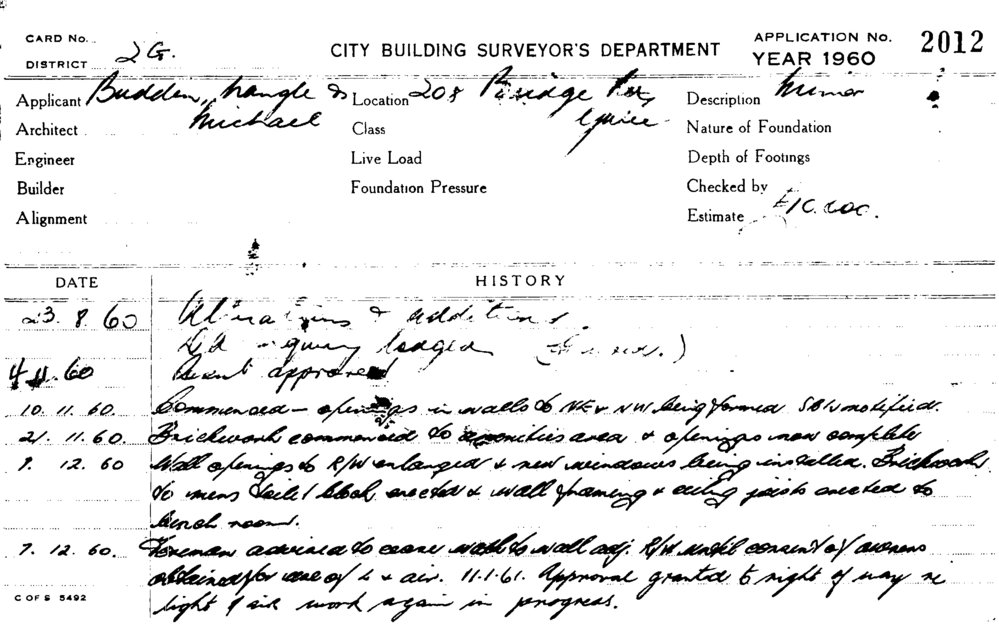 CARD No. CITY BUILDING SURVEYOR'S DEPARTMENT APPLICATION No. 2012
DISTRICT 2G. YEAR 1960
Applicant Budden, Nangle & Location 208 Bridge Rd, Description Minor
Architect Michael Class Nature of Foundation
Engineer Live Load Depth of Footings
Builder Foundation Pressure Checked by
Alignment Estimate £10.000.
DATE HISTORY
23. 8. 60 Alterations & additions.
lodged
4 11. 60 approved
10. 11. 60. Commenced - openings in walls to NE & NW being formed SBI notified.
21. 11. 60. Brickwork commenced to amenities area & openings now complete
12. 60 Wall openings to R/W enlarged & new windows being installed. Brickwork
to mens toilet block erected & wall framing & ceiling joists erected to
lunch room.
7. 12. 60. Foreman advised to cease work to wall adj. R/W until consent of owners
obtained for use of L & air. 11.1.61. Approval granted to right of way re
C OF S 5492 light & air work again in progress.